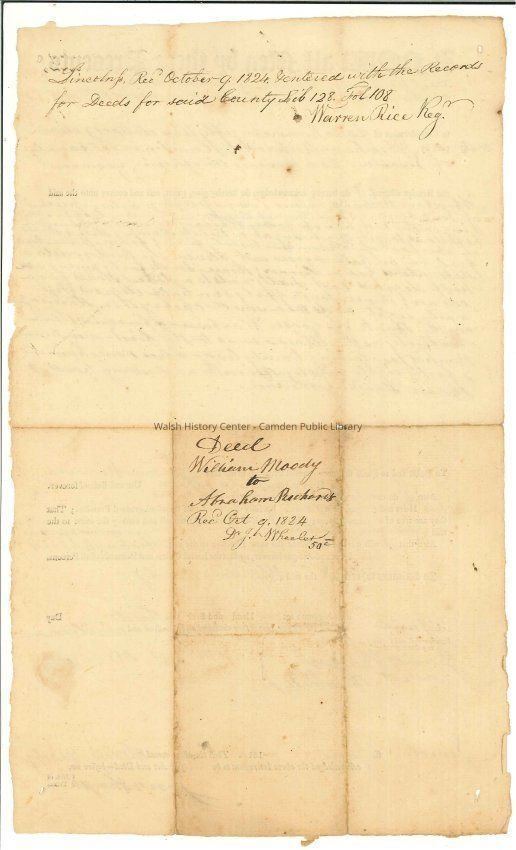 Lincoln ss. Rec.d October 9. 1824 & entered with the Records
for Deeds for said County Lib 128. Fol 108
Warren Rice Reg.r
Walsh History Center - Camden Public Library
Deed
William Moody
to
Abraham Richards
Rec.d Oct 9. 1824
Dr J. Wheeler
50c